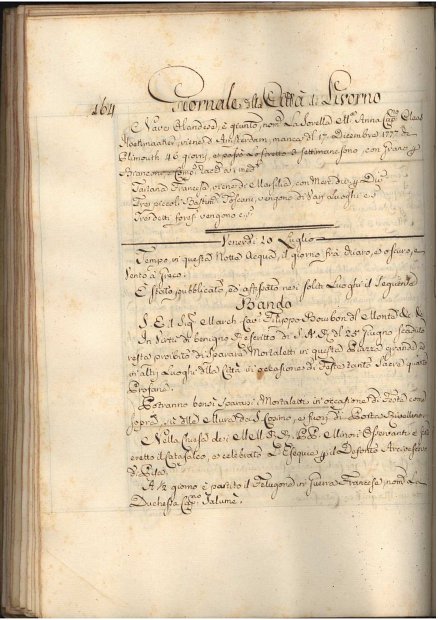 164
Giornale della Città di Livorno
Nave Olandese, è giunto, nom.
viene d'Amsterdam, manca dal 17. Dicembre 1777. da
Plimouth 46 giorni, et passò lo stretto 2 settimane sono, con grano p
Francesco
Tartana Francese, viene di Marsilia, con Merc. p D.
Tre piccoli Bastim. Toscani, vengono di varj Luoghi
vengono
Venerdì 20 Luglio
Tempo, in questa Notte Acqua, il giorno frà chiaro, e oscuro, e
Vento à Greco.
È stato pubblicato, ed affissato nei soliti Luoghi il seguente
Bando
S. E. il Sig. March. Cav. Filippo Bourbon del Monte &c &c
In virtù di benigno Rescritto di S. A. R. del 25 Giugno scaduto
resta proibito di sparare i Mortaletti in questa Piazza grande, ed
in altri Luoghi della Città in occasione di Feste tanto Sacre quanto
Profane.
Potranno bensì sparare i Mortaletti in occasione di Feste come
sopra, sù delle Mura di S. Cosimo, e fuori di Porta a Rivellino
Nella Chiesa dei M. M. R. R. P. P. Minori Osservanti è stato
eretto il Catafalco, e celebrato l'Esequie p il Defonto Arcivescovo
di Pisa.
A ½ giorno è partito il Felugone in guerra Francese nom. La
Duchessa Cap.